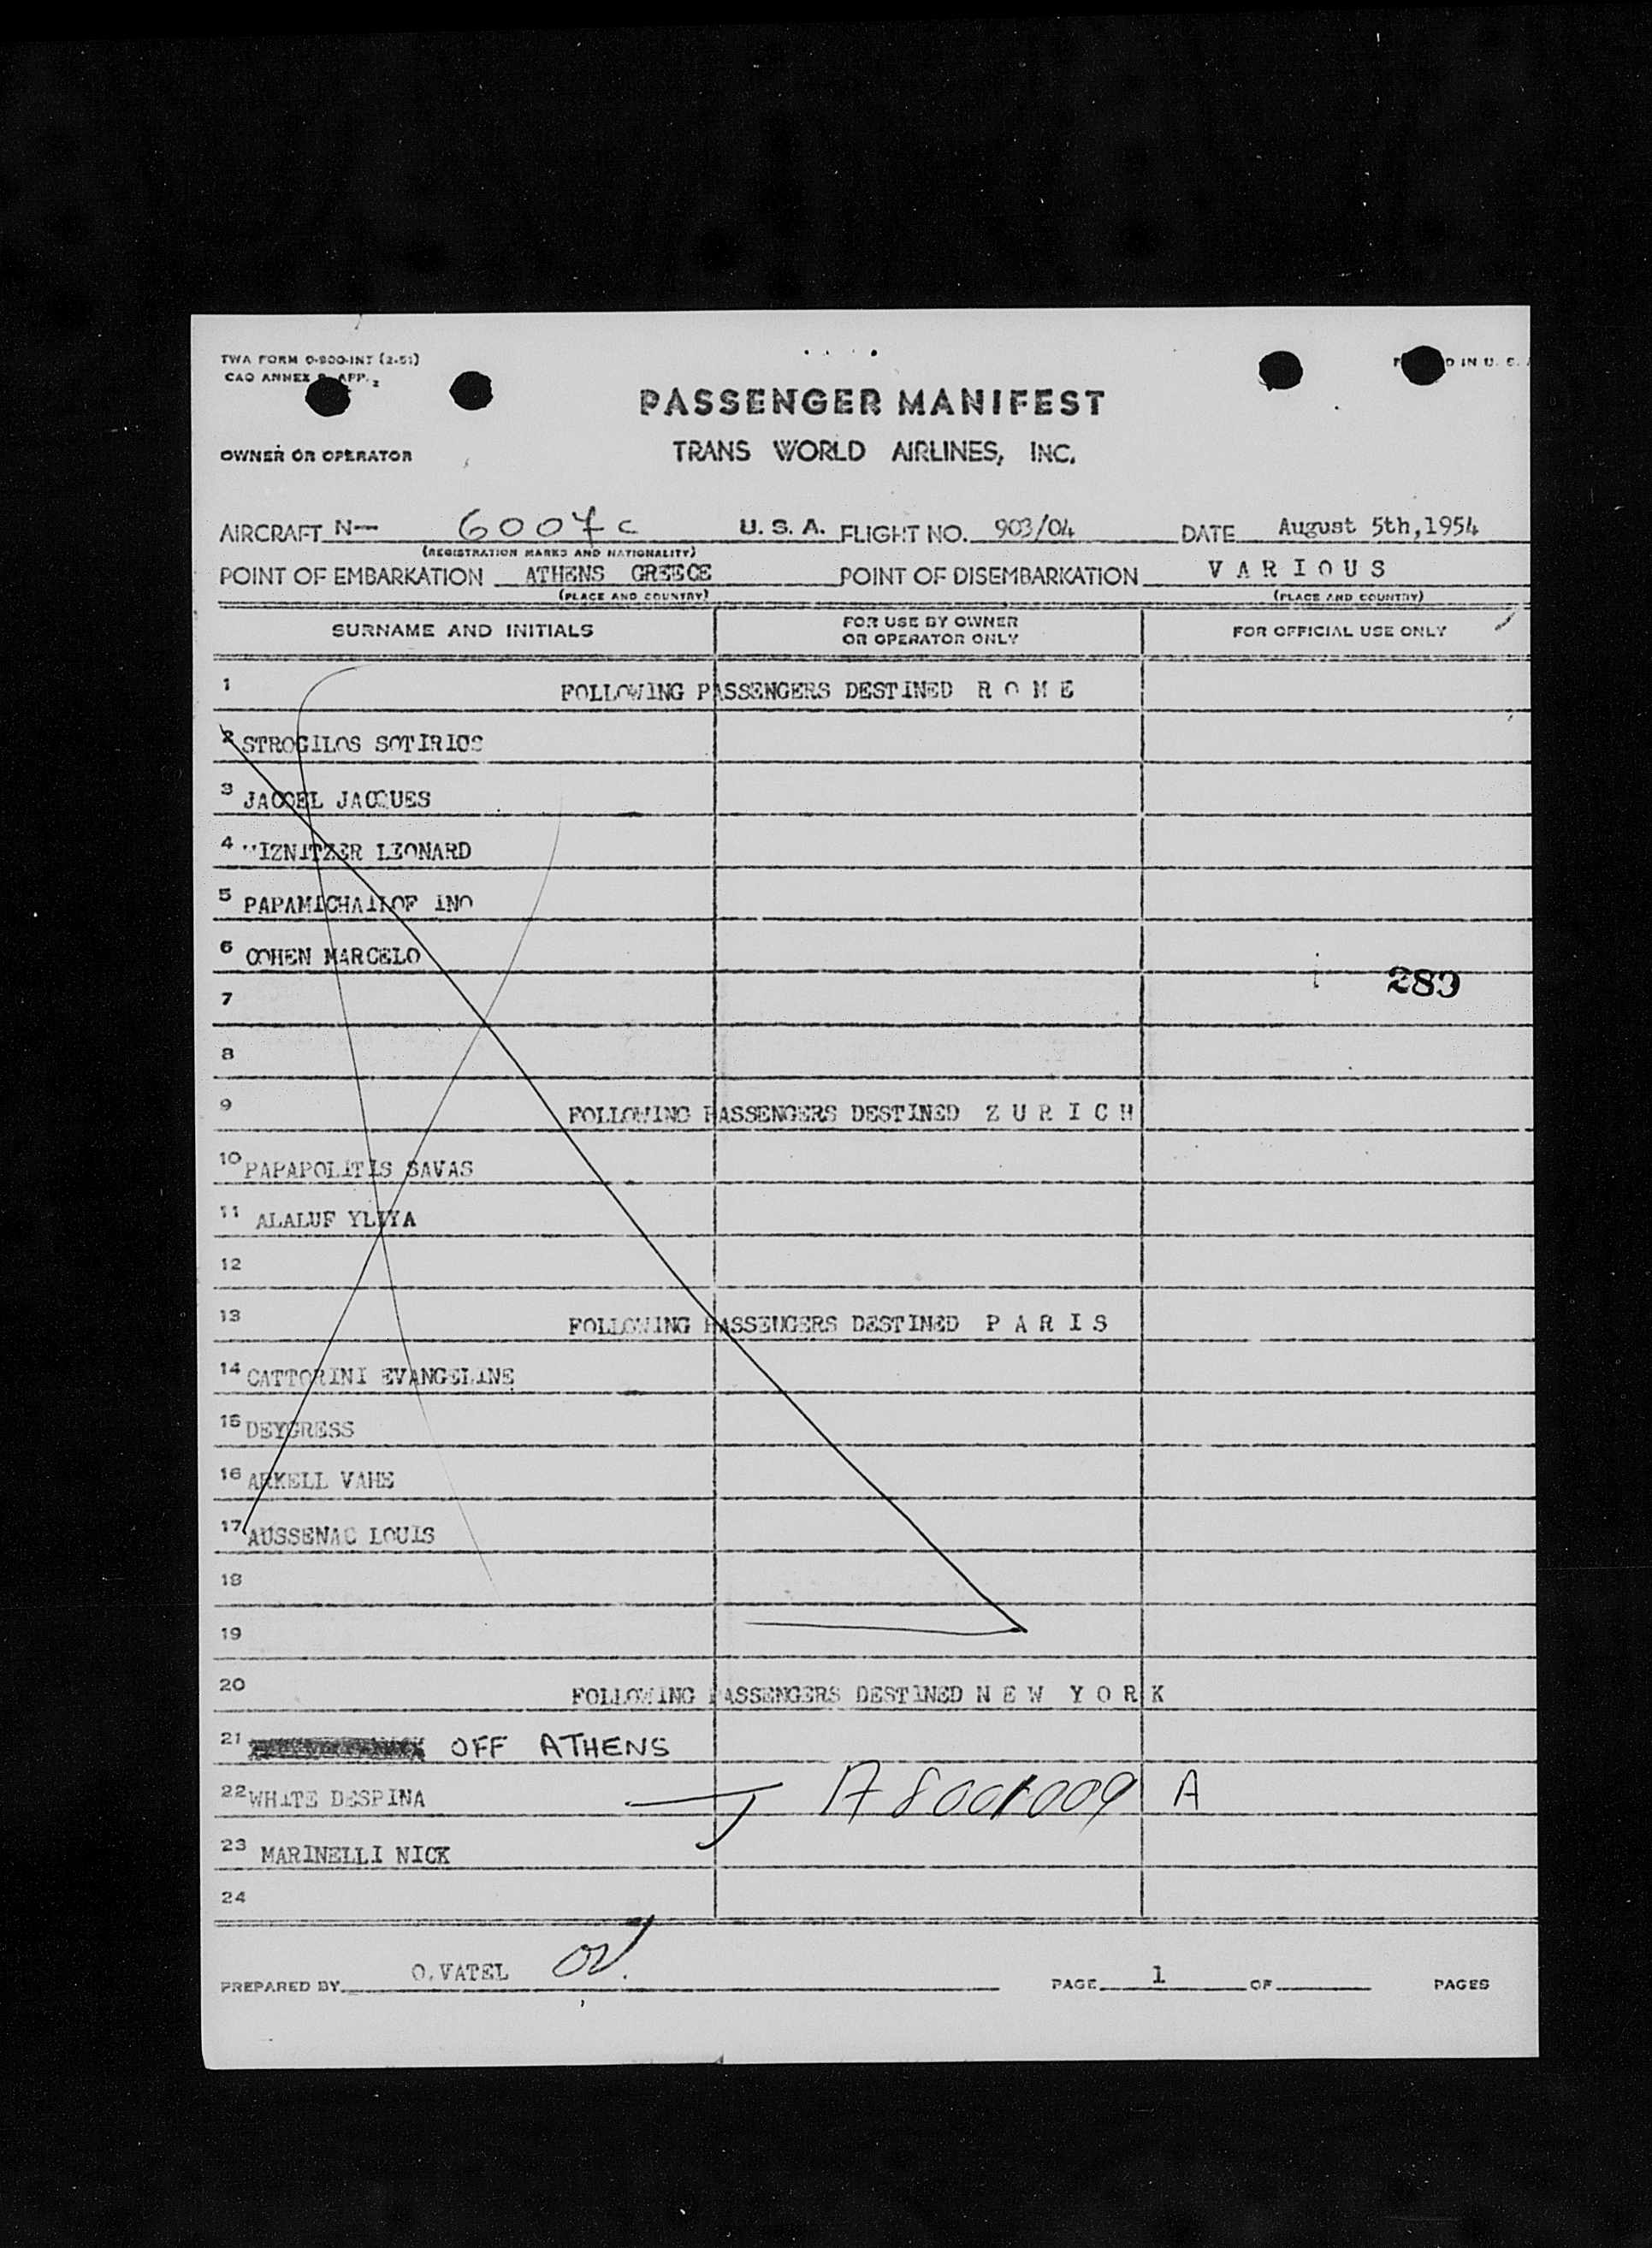 TWA FORM O-900-INT (2-51)
CAO ANNEX 9 APP. 2
D IN U. S.
PASSENGER MANIFEST
OWNER OR OPERATOR
TRANS WORLD AIRLINES, INC.
AIRCRAFT N— 6007 C U. S. A. FLIGHT NO. 903/04 DATE August 5th,1954
(REGISTRATION MARKS AND NATIONALITY)
POINT OF EMBARKATION ATHENS GREECE POINT OF DISEMBARKATION V A R I O U S
(PLACE AND COUNTRY) (PLACE AND COUNTRY)
SURNAME AND INITIALS FOR USE BY OWNER OR OPERATOR ONLY FOR OFFICIAL USE ONLY
1 FOLLOWING PASSENGERS DESTINED R O M E
2 STROGILOS SOTIRIOS
3 JACOEL JACQUES
4 IZNITZER LEONARD
5 PAPAMICHAILOF INO
6 COHEN MARCELO
289
7
8
9 FOLLOWING PASSENGERS DESTINED Z U R I C H
10 PAPAPOLITIS SAVAS
11 ALALUF YLIYA
12
13 FOLLOWING PASSENGERS DESTINED P A R I S
14 CATTORINI EVANGELINE
15 DEYGRESS
16 ARKELL VAHE
17 AUSSENAC LOUIS
18
19
20 FOLLOWING PASSENGERS DESTINED N E W Y O R K
21 OFF ATHENS
22 WHITE DESPINA A 8001009 A
23 MARINELLI NICK
24
PREPARED BY O.VATEL OV. PAGE 1 OF PAGES